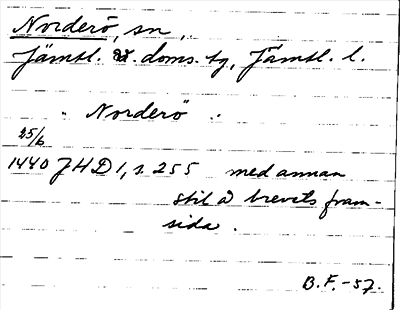 Norderö, sn,
Jämtl. v. doms. tg, Jämtl. l.
" Norderö "
25/6
1440 JHD 1, s. 255 med annan
stil å brevets fram-
sida.
B.F.-57.